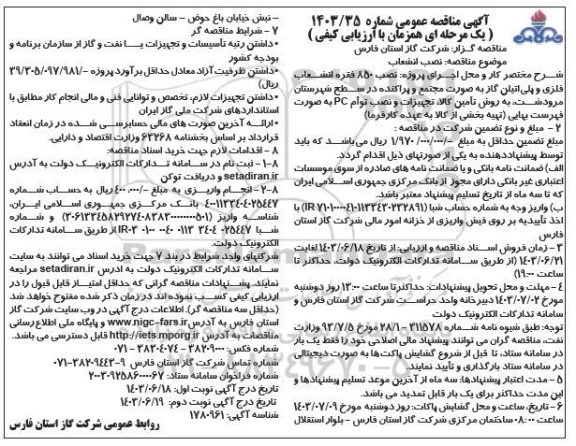 آگهی مناقصه عمومی شماره ۱۴۰۳/۳۵
( یک مرحله ای همزمان با ارزیابی کیفی )
مناقصه گزار: شرکت گاز استان فارس
موضوع مناقصه: نصب انشعاب
شرح مختصر کار و محل اجرای پروژه: نصب ۸۵۰ فقره انشعاب
فلزی و پلی‌اتیلن گاز به صورت مجتمع و پراکنده در سطح شهرستان
مرودشت، به روش تأمین کالا، تجهیزات و نصب توأم PC به صورت
فهرست بهایی (تهیه بخشی از کالا به عهده کارفرما)
۲ – مبلغ و نوع تضمین شرکت در مناقصه :
مبلغ تضمین حداقل به مبلغ ۱/۹۷۰/۰۰۰/۰۰۰ ریال می‌باشد که باید
توسط پیشنهاددهنده به یکی از صورتهای ذیل اقدام گردد.
الف) ضمانت نامه بانکی و یا ضمانت نامه های صادره از سوی موسسات
اعتباری غیر بانکی دارای مجوز از بانک مرکزی جمهوری اسلامی ایران
که تا سه ماه از تاریخ تسلیم پیشنهاد معتبر باشد.
ب) واریز وجه به شماره حساب شبا
اخذ تأییدیه بر روی فیش واریزی از خزانه امور مالی شرکت گاز استان
فارس
۳ – زمان فروش اسناد مناقصه و ارزیابی: از تاریخ ۱۴۰۳/۰۶/۱۸ لغایت
۱۴۰۳/۰۶/۲۱ (از طریق سامانه تدارکات الکترونیک دولت، حداکثر تا
ساعت ۱۹:۰۰)
۴ – مهلت و محل تحویل پیشنهادات: حداکثر تا ساعت ۱۳:۰۰ روز دوشنبه
مورخ ۱۴۰۳/۰۷/۰۲ دبیرخانه واحد حراست شرکت گاز استان فارس و
سامانه تدارکات الکترونیک دولت
توجه: طبق شیوه نامه شماره ۳۱۱۵۷۸ – ۲۸/۱ مورخ ۹۳/۷/۵ وزارت
نفت، مناقصه گران می توانند پیشنهاد مالی اصلاحی خود را فقط یک بار
در سامانه ستاد، تا قبل از شروع گشایش پاکت‌ها به صورت دیجیتالی
در سامانه ستاد بارگذاری و تأیید نمایند.
۵ – مدت اعتبار پیشنهادها: سه ماه از آخرین موعد تسلیم پیشنهادها و
این مدت حداکثر برای یک بار قابل تمدید می باشد.
۶ – تاریخ، ساعت و محل گشایش پاکات: روز دوشنبه مورخ ۱۴۰۳/۰۷/۰۹
ساعت ۰۸:۰۰ ساختمان مرکزی شرکت گاز استان فارس – بلوار استقلال
– نبش خیابان باغ حوض – سالن وصال
۷ – شرایط مناقصه گر
•داشتن رتبه تأسیسات و تجهیزات یا نفت و گاز از سازمان برنامه و
بودجه کشور
•داشتن ظرفیت آزاد معادل حداقل برآورد پروژه
ریال)
•داشتن تجهیزات لازم، تخصص و توانایی فنی و مالی انجام کار مطابق با
استانداردهای شرکت ملی گاز ایران
•ارائه آخرین صورت های مالی حسابرسی شده در زمان انعقاد
قرارداد بر اساس بخشنامه ۶۳۲۶۸ وزارت اقتصاد و دارایی.
۸ – اقدامات لازم جهت خرید اسناد مناقصه:
۸–۱– ثبت نام در سامانه تدارکات الکترونیک دولت به آدرس
setadiran.ir و دریافت توکن
۸–۲– انجام واریزی به مبلغ ۴۰۰.۰۰۰/– ریال به حساب شماره
بانک مرکزی جمهوری اسلامی ایران،
شناسه واریز و شماره
شبا از طریق سامانه تدارکات
الکترونیک دولت.
شرکتهای واجد شرایط در بند ۷ جهت خرید اسناد می توانند به سایت
سامانه تدارکات الکترونیک دولت به آدرس setadiran.ir مراجعه
نمایند. پیشنهادات مناقصه گرانی که حداقل امتیاز قابل قبول را در
ارزیابی کیفی کسب نموده اند در زمان ذکر شده مفتوح خواهد شد
(حداقل سه مناقصه گر). اطلاعات درج آگهی در وب سایت شرکت گاز
استان فارس به آدرس www.nigc-fars.ir و پایگاه ملی اطلاع‌رسانی
مناقصات به آدرس http://iets.mporg.ir قابل دسترسی می باشد.
شماره فکس: ۳۸۲۰۹۰۰۰ – ۳۸۲۰۴۷۲۴ – ۰۷۱
شماره تماس شرکت گاز استان فارس ۹–۳۸۲۰۹۴۴۳–۰۷۱
شماره فراخوان سامانه ستاد: ۲۰۰۳۰۹۲۵۸۶۰۰۰۰۶۷
تاریخ درج آگهی نوبت اول: ۱۴۰۳/۰۶/۱۸
تاریخ درج آگهی نوبت دوم: ۱۴۰۳/۰۶/۱۹
شناسه آگهی: ۱۷۸۰۹۶۱
روابط عمومی شرکت گاز استان فارس